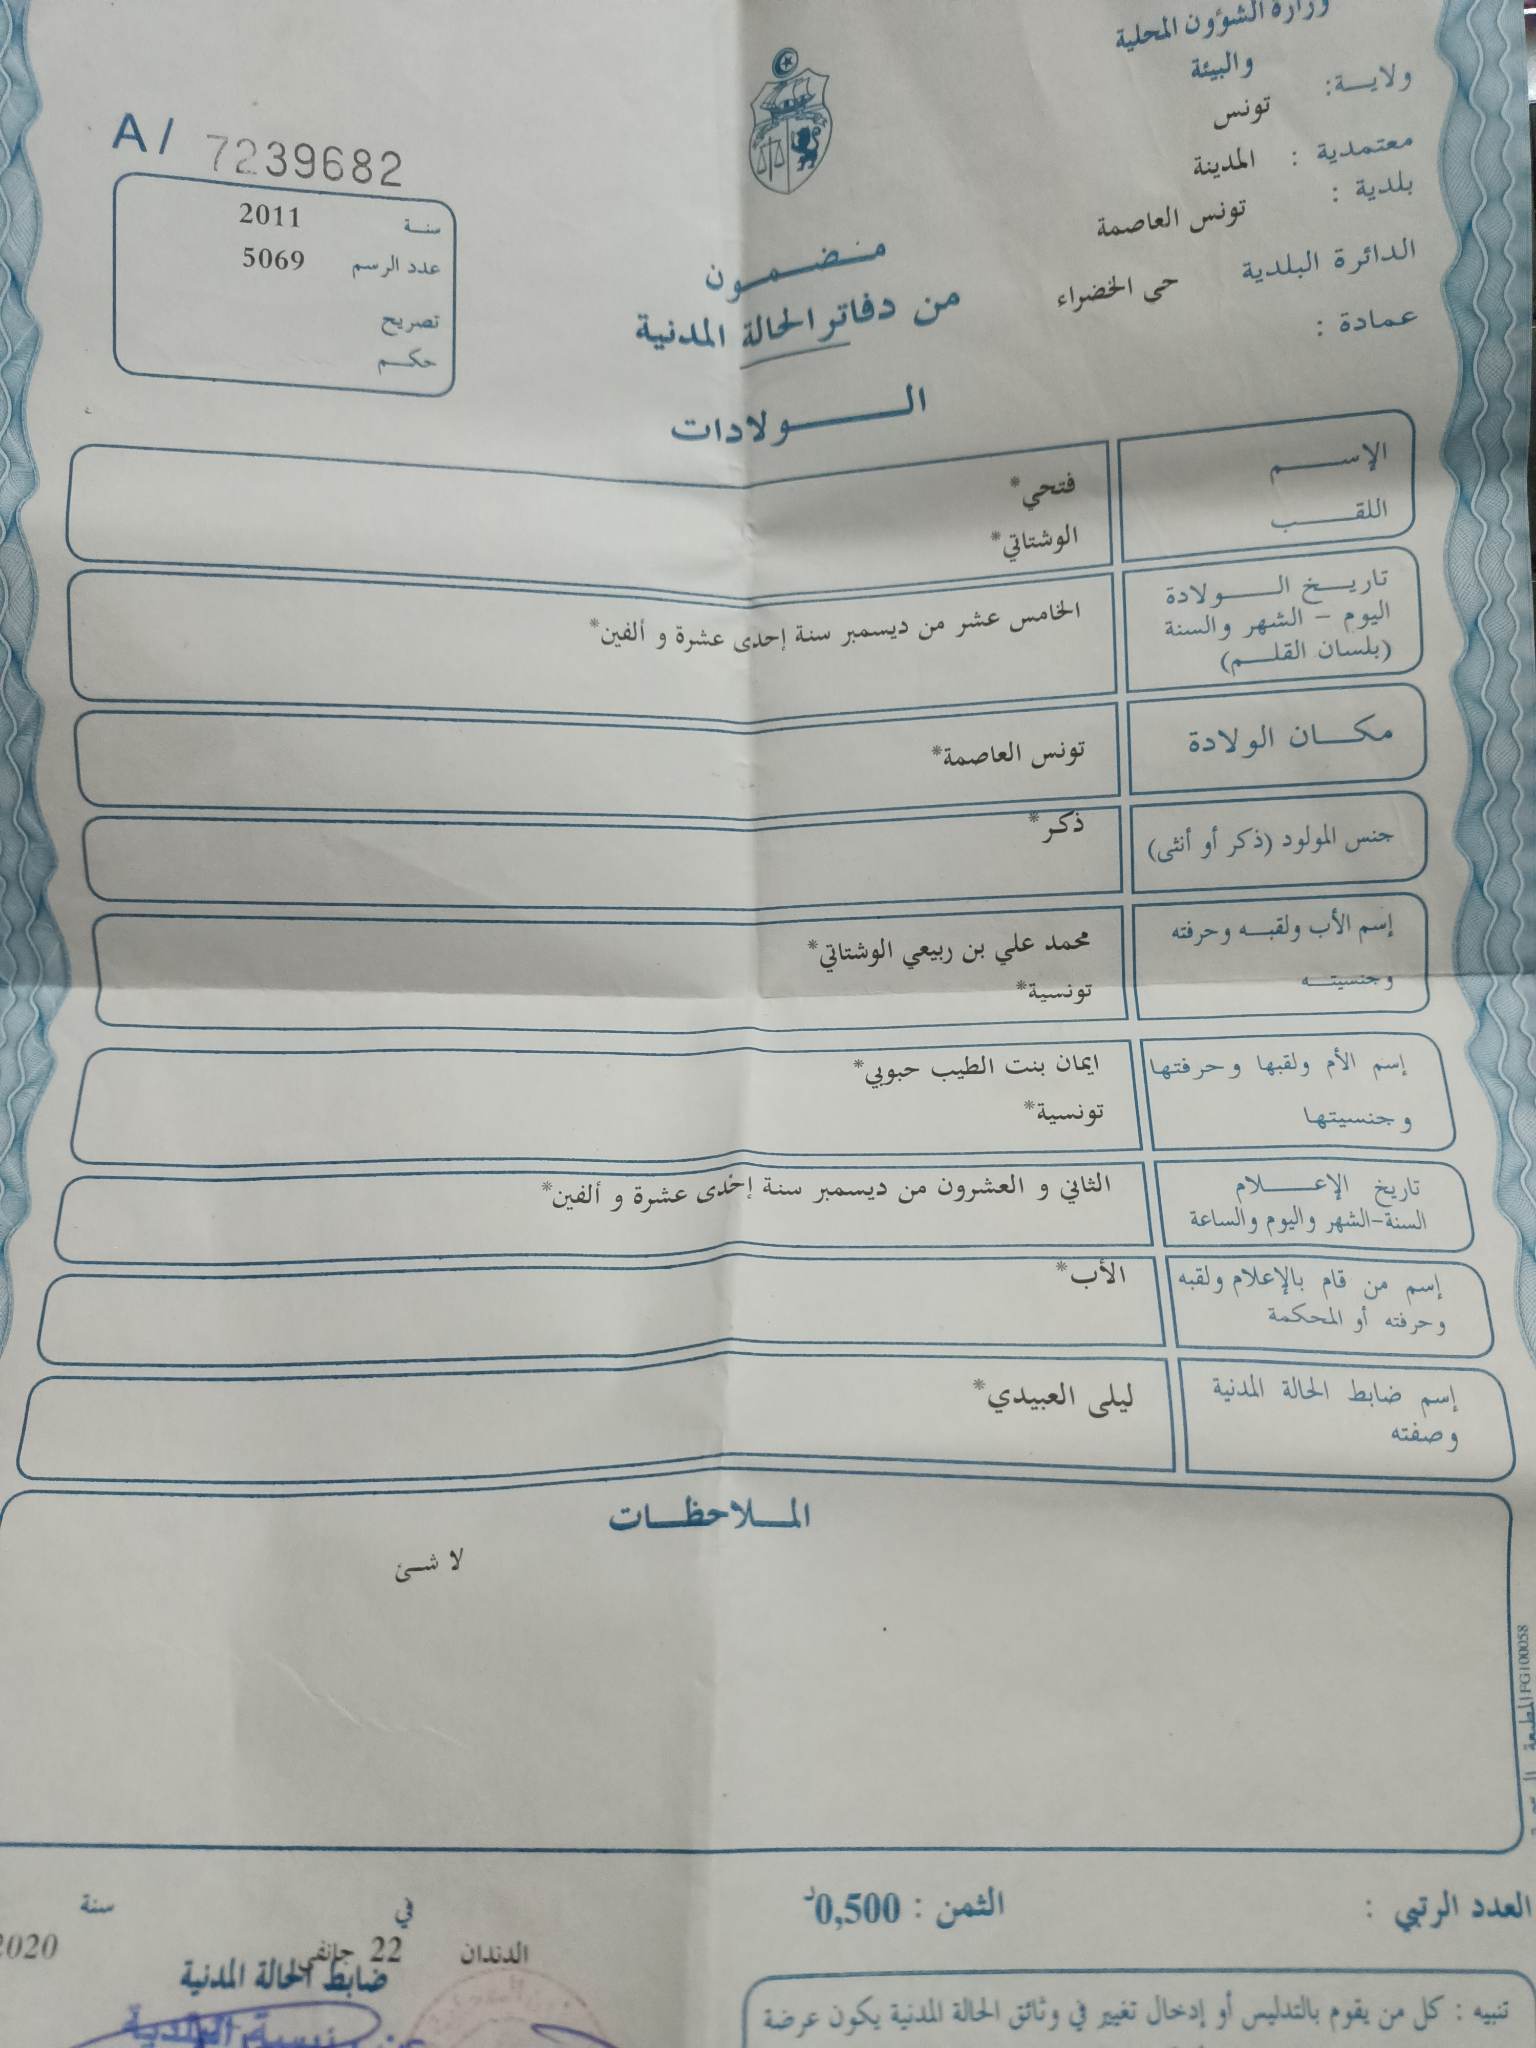 وزارة الشؤون المحلية
والبيئة
ولايـــة: تونس
معتمدية : المدينة
بلدية : تونس العاصمة
الدائرة البلدية حي الخضراء
عمادة :
A/ 7239682
سنـة 2011
عدد الرسم 5069
تصريح
حكـم
مـضـمـون
من دفاتر الحالة المدنية
الـــولادات
الإســـم فتحي*
اللقـــب الوشتاتي*
تاريــخ الـــولادة
اليوم - الشهر والسنة
(بلسان القلـم)
الخامس عشر من ديسمبر سنة إحدى عشرة و ألفين*
مكـــان الولادة تونس العاصمة*
جنس المولود (ذكر أو أنثى) ذكر*
إسم الأب ولقبـه وحرفته محمد علي بن ربيعي الوشتاتي*
وجنسيتـــه تونسية*
إسم الأم ولقبها وحرفتها ايمان بنت الطيب حبوبي*
وجنسيتها تونسية*
تاريخ الإعـــلام
السنة-الشهر واليوم والساعة
الثاني و العشرون من ديسمبر سنة إحدى عشرة و ألفين*
إسم من قام بالإعلام ولقبه
وحرفته أو المحكمة
الأب*
إسم ضابط الحالة المدنية
وصفته
ليلى العبيدي*
الملاحظـات
لا شئ
المطبعة
FG100058
العدد الرتبي :
الثمن : 0,500د
في سنة
الدندان 22 جانفي 2020
ضابط الحالة المدنية
تنبيه : كل من يقوم بالتدليس أو إدخال تغيير في وثائق الحالة المدنية يكون عرضة